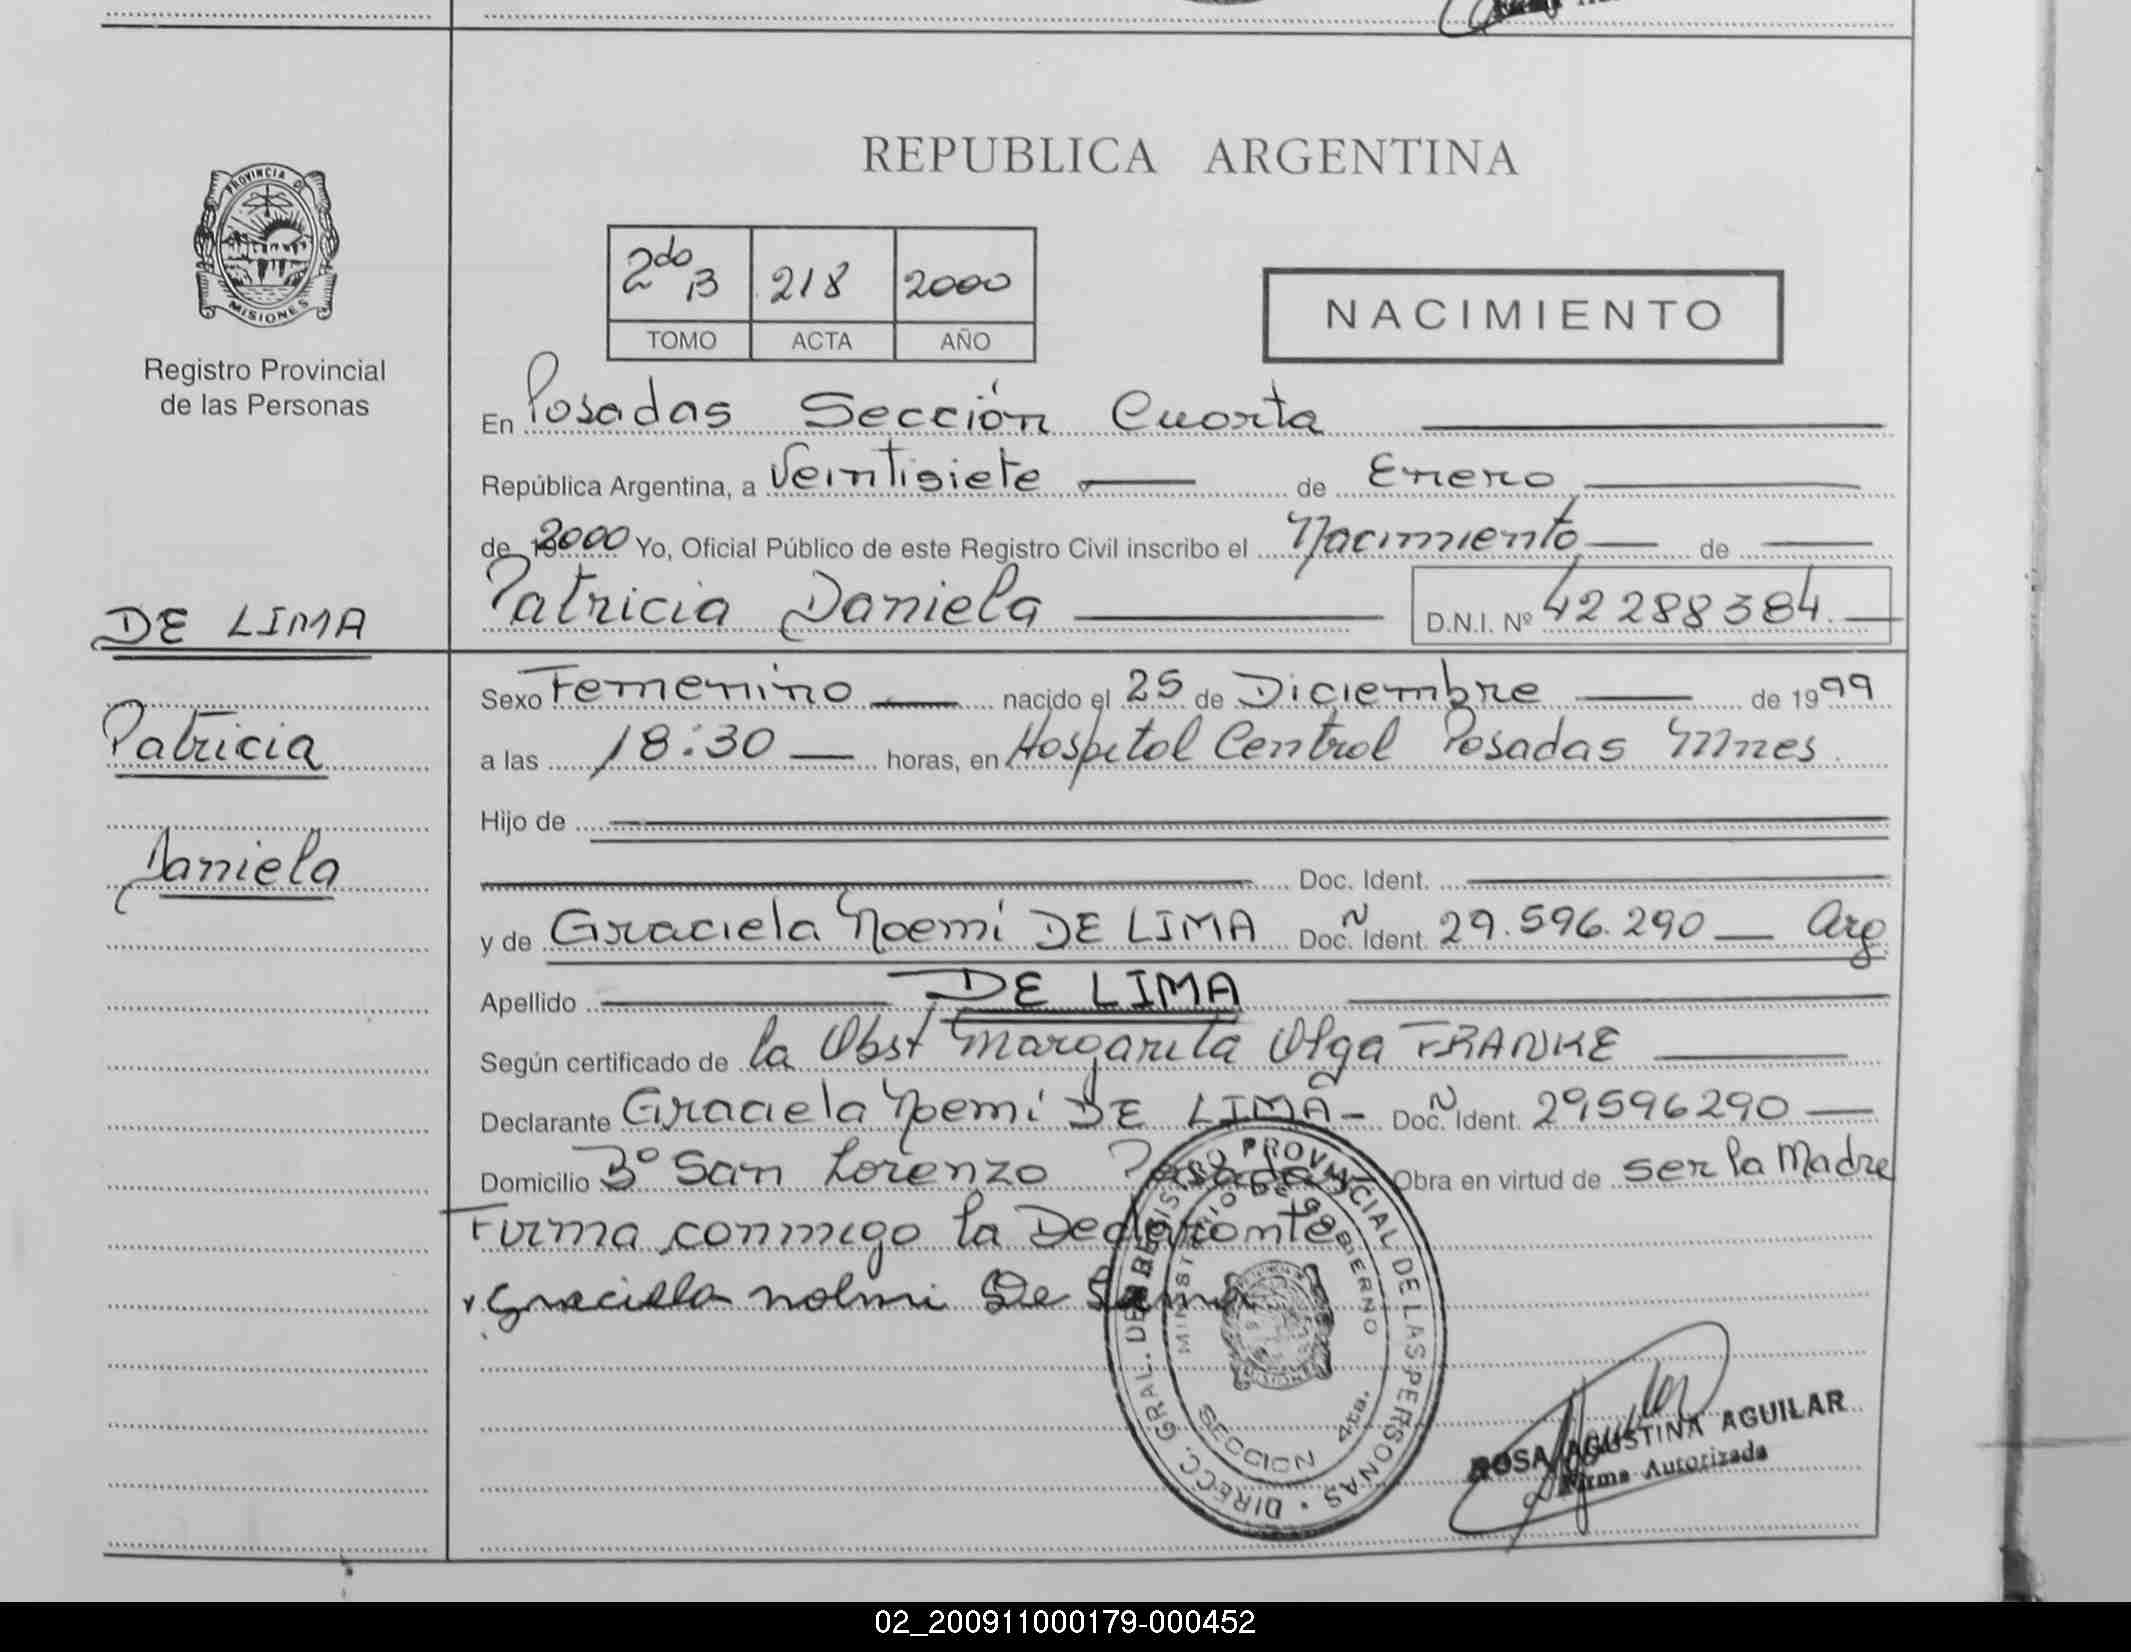 REPUBLICA ARGENTINA
PROVINCIA DE
MISIONES
Registro Provincial
de las Personas
2do B 218 2000
TOMO ACTA AÑO
NACIMIENTO
En Posadas Sección Cuarta
República Argentina, a Veintisiete de Enero
de 2000 Yo, Oficial Público de este Registro Civil inscribo el Nacimiento de
Patricia Daniela D.N.I. Nº 42288384
DE LIMA
Patricia
Daniela
Sexo Femenino nacido el 25 de Diciembre de 1999
a las 18:30 horas, en Hospital Central Posadas Mnes
Hijo de
Doc. Ident.
y de Graciela Noemí DE LIMA Doc. N Ident. 29.596.290 Arg
Apellido DE LIMA
Según certificado de la Obst Margarita Olga FRANKE
Declarante Graciela Noemí DE LIMA - Doc. N Ident. 29596290
Domicilio Bº San Lorenzo Posadas Obra en virtud de ser la Madre
Firma conmigo la Declarante
Graciela Noemi De Lima
DIRECC. GRAL. DEL REGISTRO PROVINCIAL DE LAS PERSONAS
MINISTERIO DE GOBIERNO
SECCION 4ta.
ROSA AGUSTINA AGUILAR
Firma Autorizada
02_200911000179-000452